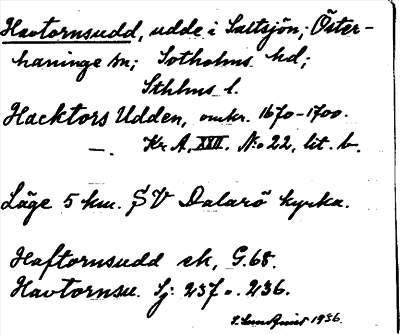 Havtornsudd, udde i Saltsjön; Öster-
haninge sn; Sotholms hd;
Sthlms l.
Hacktors Udden, omkr. 1670-1700.
—. Kr. A, XVII. No 22, lit. b.
Läge 5 km. SV Dalarö kyrka.
Haftornsudd ek, G.68.
Havtornsu. Sj. 237 o. 236.
1936.